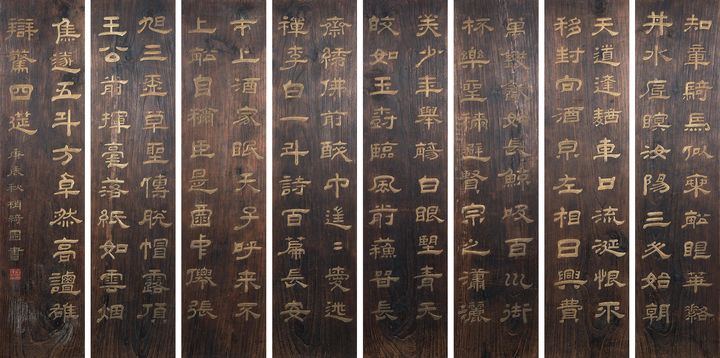 知章騎馬似乘船眼華落
井水底瞑汝陽三斗始朝
天道逢麴車口流涎恨不
移封向酒泉左相日興費
萬錢飲如長鯨吸百川銜
杯樂聖稱避賢宗之瀟灑
美少年舉觴白眼望青天
皎如玉樹臨風前蘇晉長
齋繡佛前醉中往往愛逃
禪李白一斗詩百篇長安
市上酒家眠天子呼來不
上船自稱臣是酒中僊張
旭三杯草聖傳脫帽露頂
王公前揮毫落紙如雲烟
焦遂五斗方卓然高談雄
辯驚四筵 庚辰秋綺園書